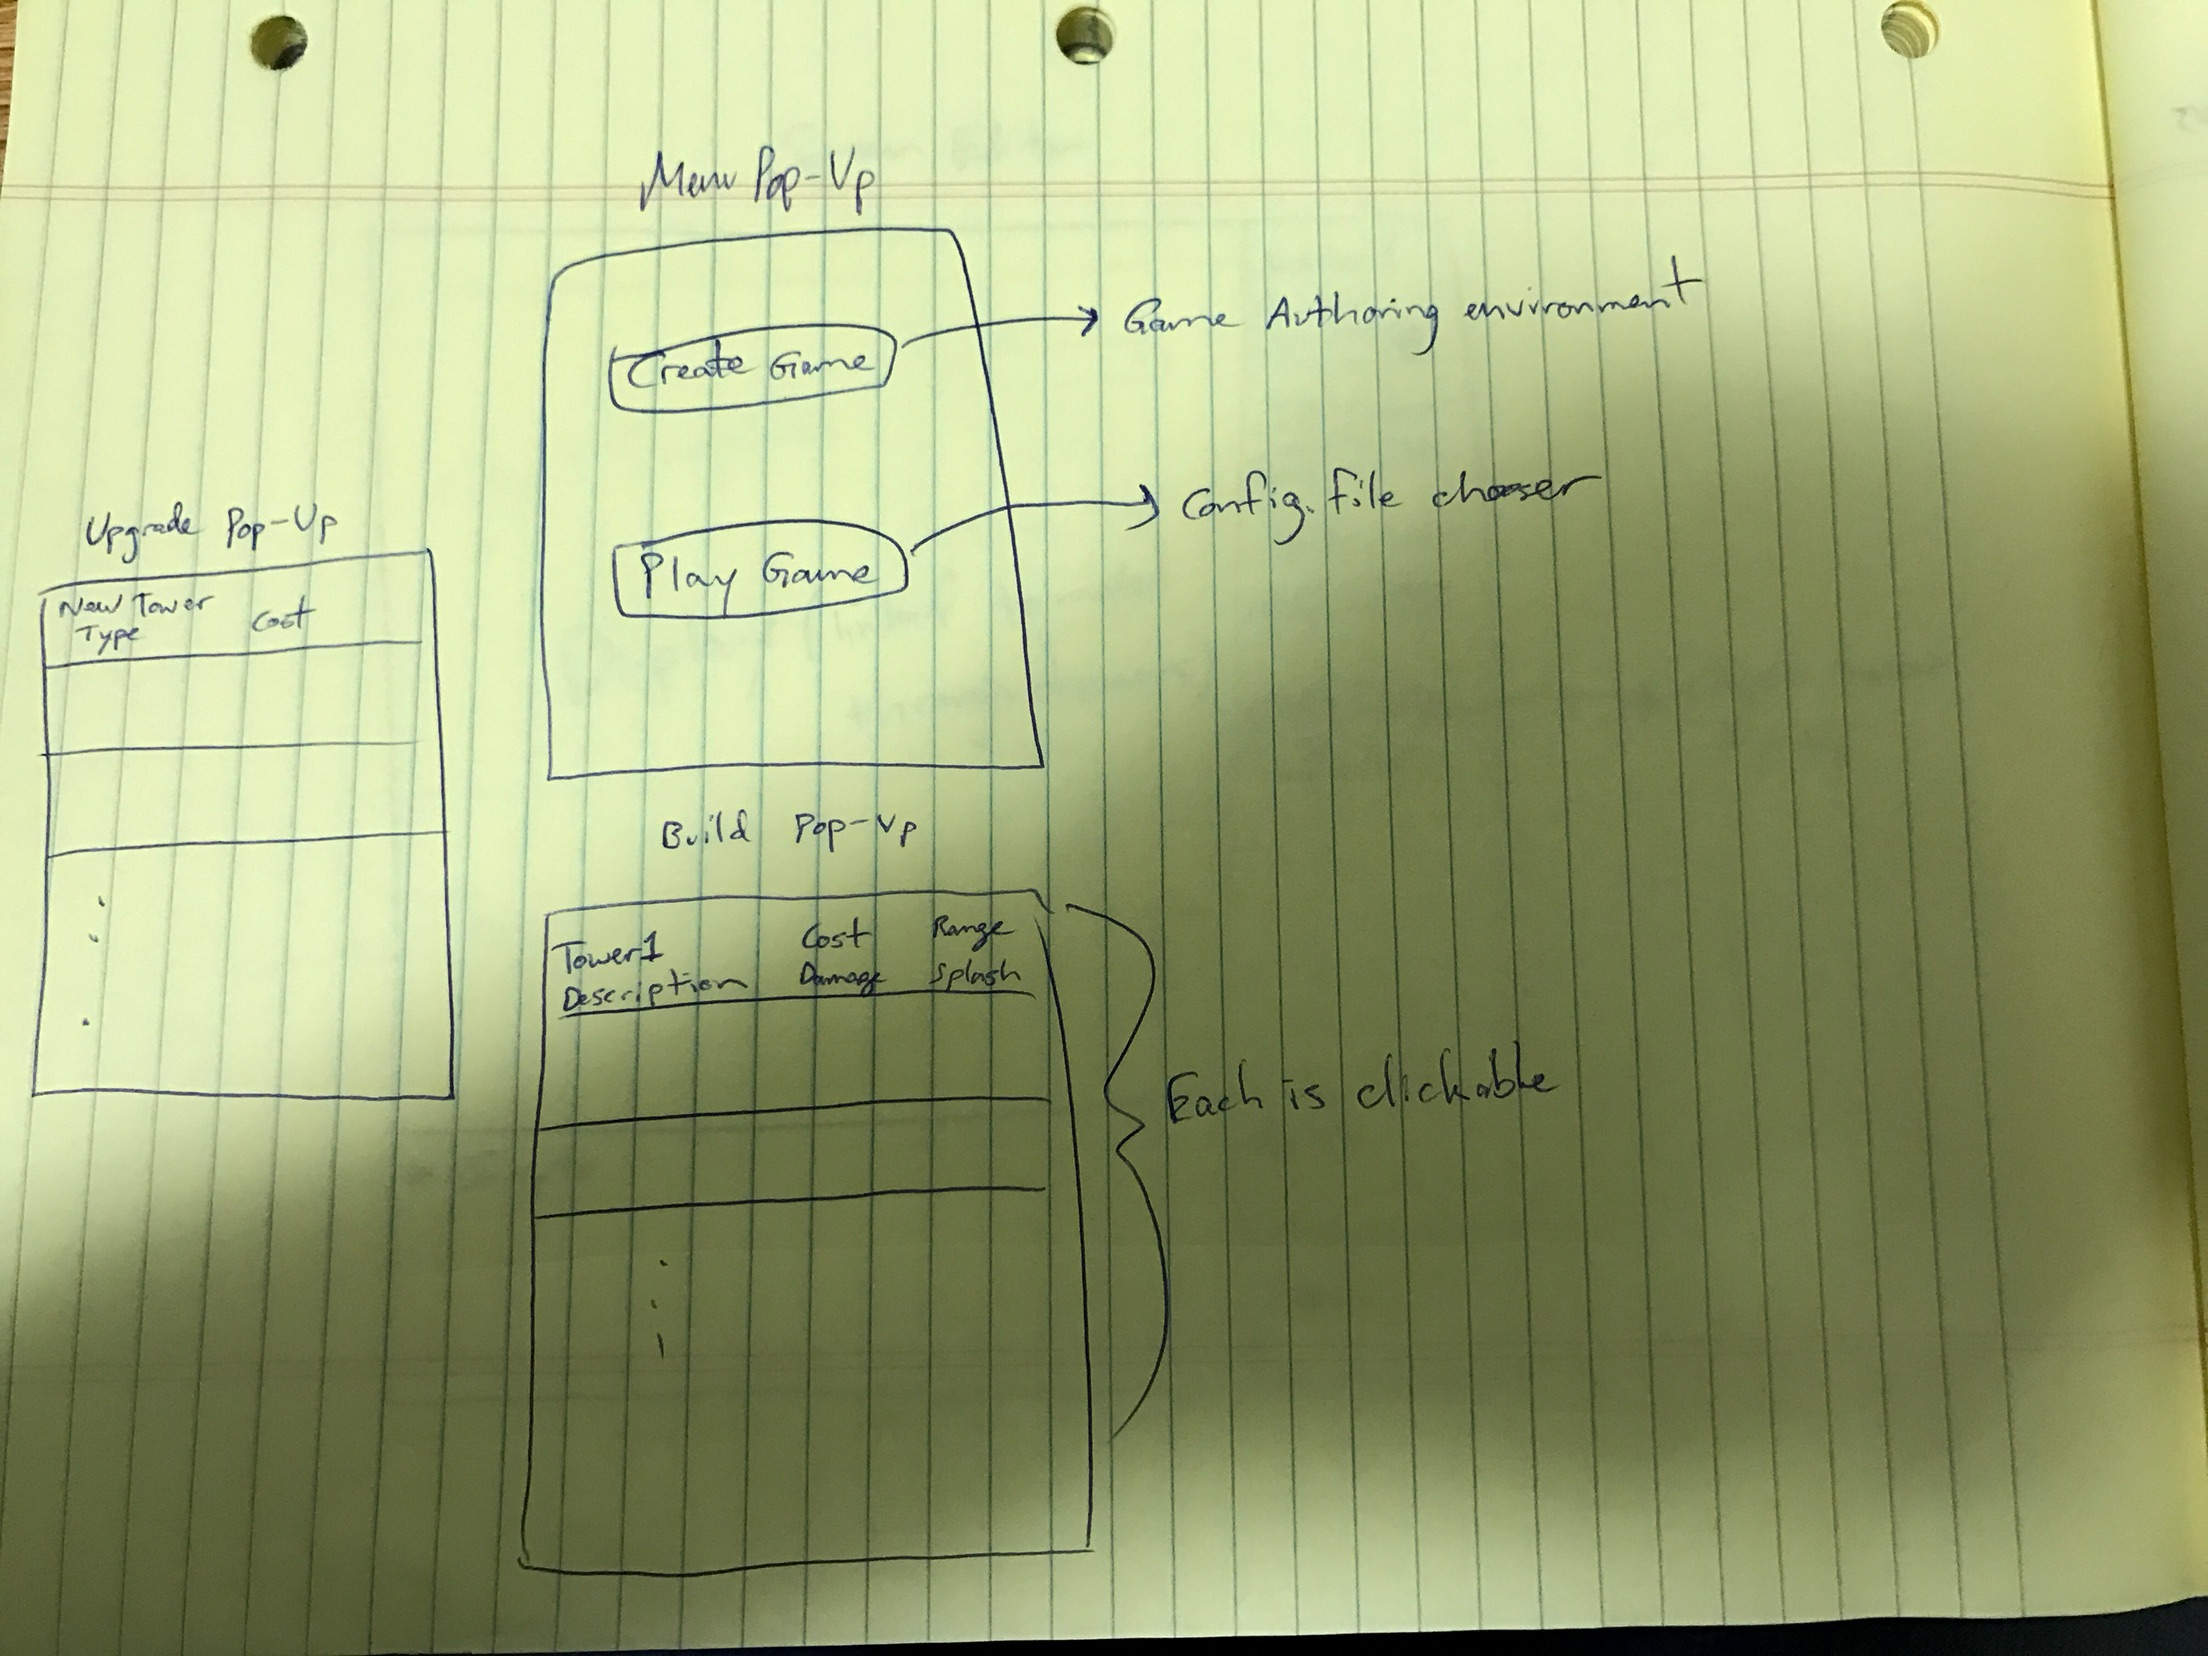 Menu Pop-Up
Create Game
Game Authoring environment
Play Game
Config. file chooser
Upgrade Pop-Up
New Tower Cost
Type
Build Pop-Up
Tower1 Cost Range
Description Damage Splash
Each is clickable